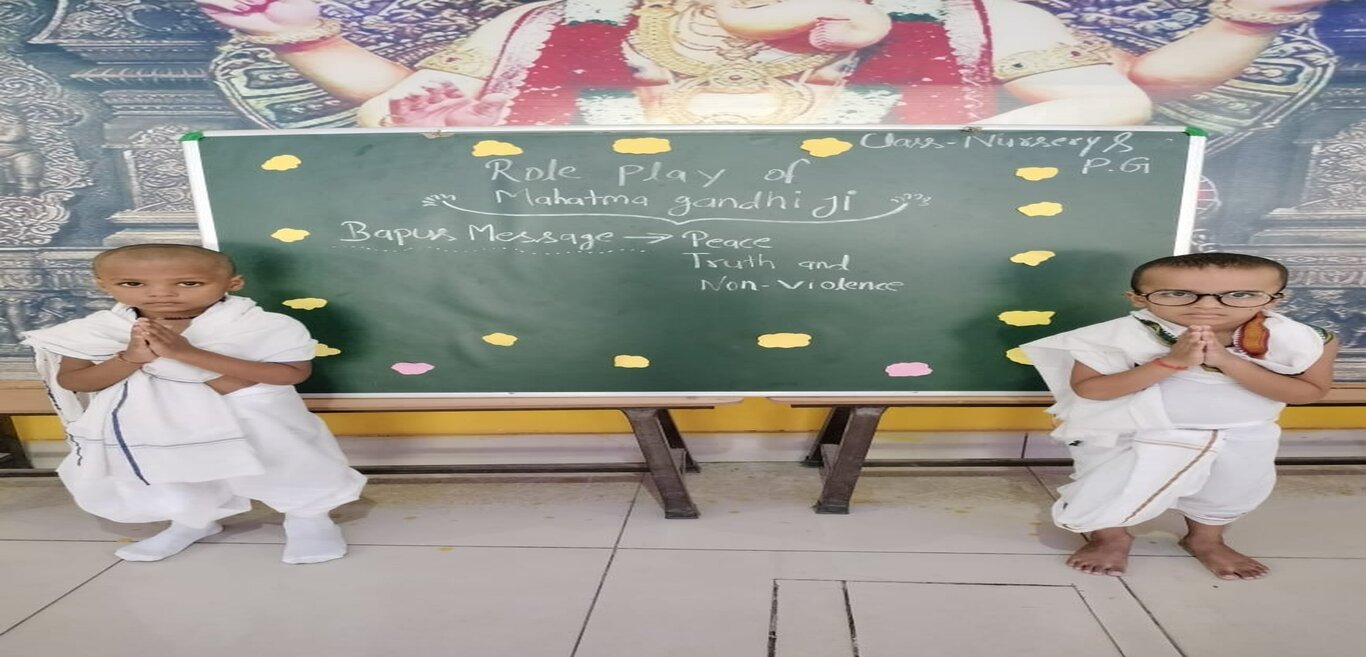 Class-Nursery &
P.G
Role Play of
Mahatma gandhi ji
Bapus Message → Peace
Truth and
Non-violence